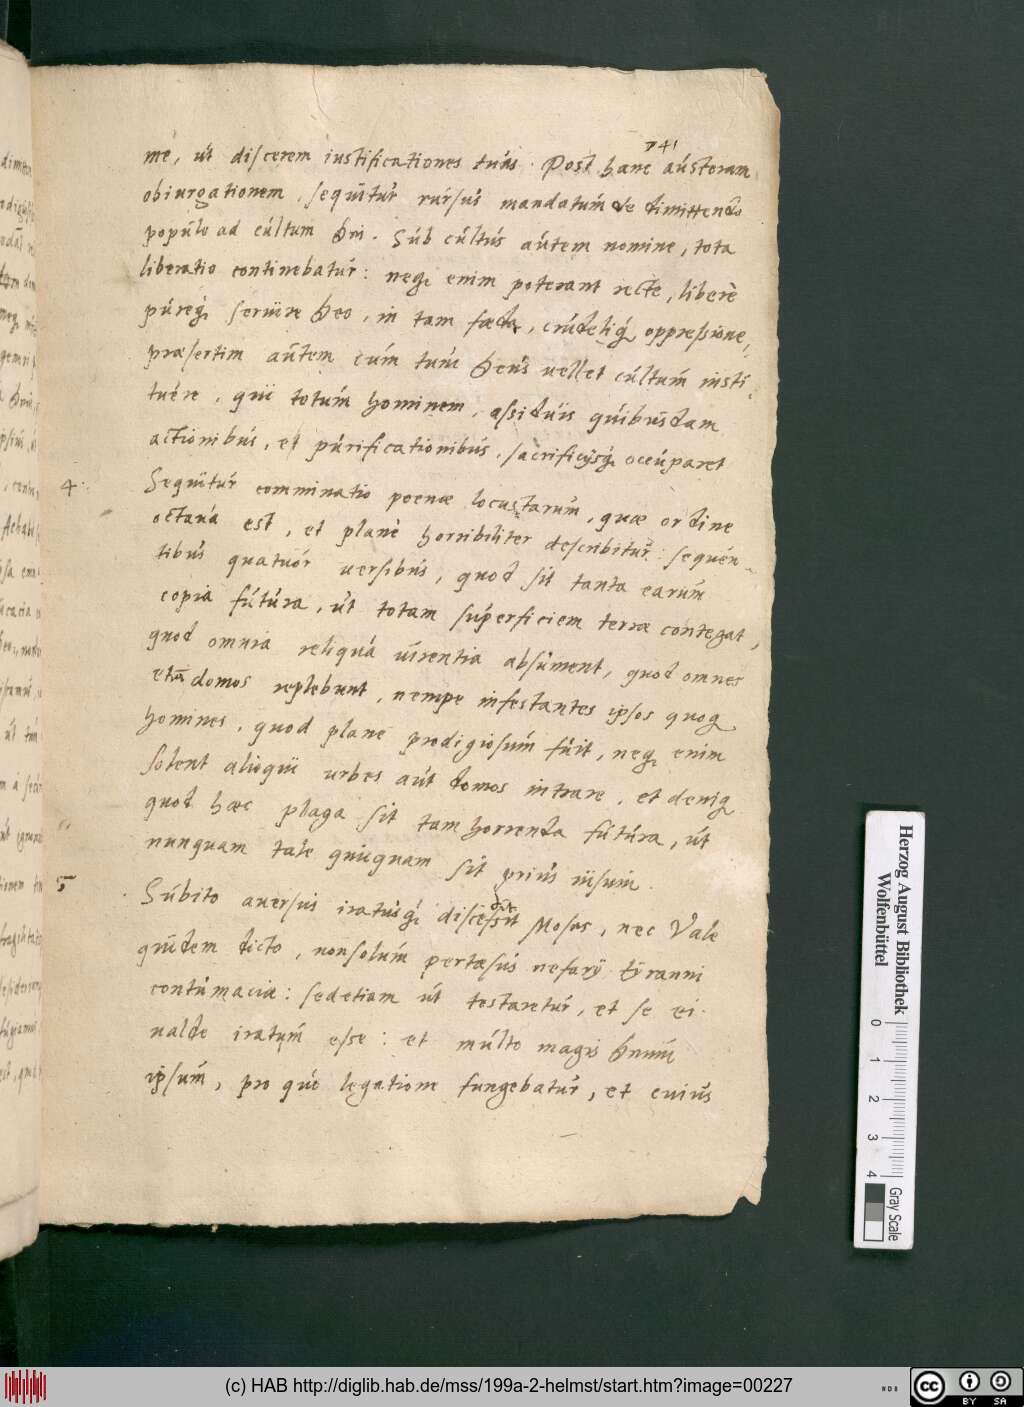 741
me, ut discerem iustificationes tuas. Post hanc austeram
obiurgationem, sequitur rursus mandatum de dimittendo
populo ad cultum Dei. Sub cultus autem nomine, tota
liberatio continebatur: neq; enim poterant recte, liberè
pureq; seruire Deo, in tam fæda, crudeliq; oppreßione,
præsertim autem cum tum Deus vellet cultum insti-
tuere, qui totum hominem, assiduis quibusdam
actionibus, et purificationibus, sacrificijsq; occuparet
4 Sequitur comminatio poenæ locustarum, quæ ordine
octaua est, et planè horribiliter describitur: sequen-
tibus quatuor uersibus, quod sit tanta earum
copia futura, ut totam superficiem terræ contegat,
quod omnia reliqua uirentia absument, quod omnes
etiã domos replebunt, nempe infestantes ipsos quoq;
homines, quod planè prodigiosum fuit, neq; enim
solent alioqui urbes aut domos intrare, et deniq;
quod hæc plaga sit tam horrenda futura, ut
nunquam tale quicquam sit prius uisum.
5 Subito auersus iratusq; discessit Moses, nec Vale
quidem dicto, non solum pertæsus nefarij tyranni
contumacia: sed etiam ut testaretur, et se ei
ualde iratum esse: et multo magis Dnum
ipsum, pro quo legatione fungebatur, et cuius
Herzog August Bibliothek
Wolfenbüttel
0 1 2 3 4
Gray Scale
(c) HAB http://diglib.hab.de/mss/199a-2-helmst/start.htm?image=00227
cc BY SA